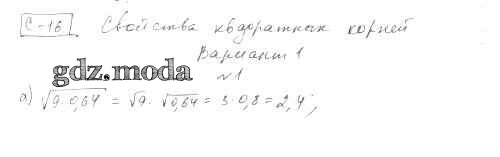 С-16 Свойства квадратных корней
Вариант 1
gdz.moda
№1
а) √9·0,64 = √9 · √0,64 = 3·0,8 = 2,4;